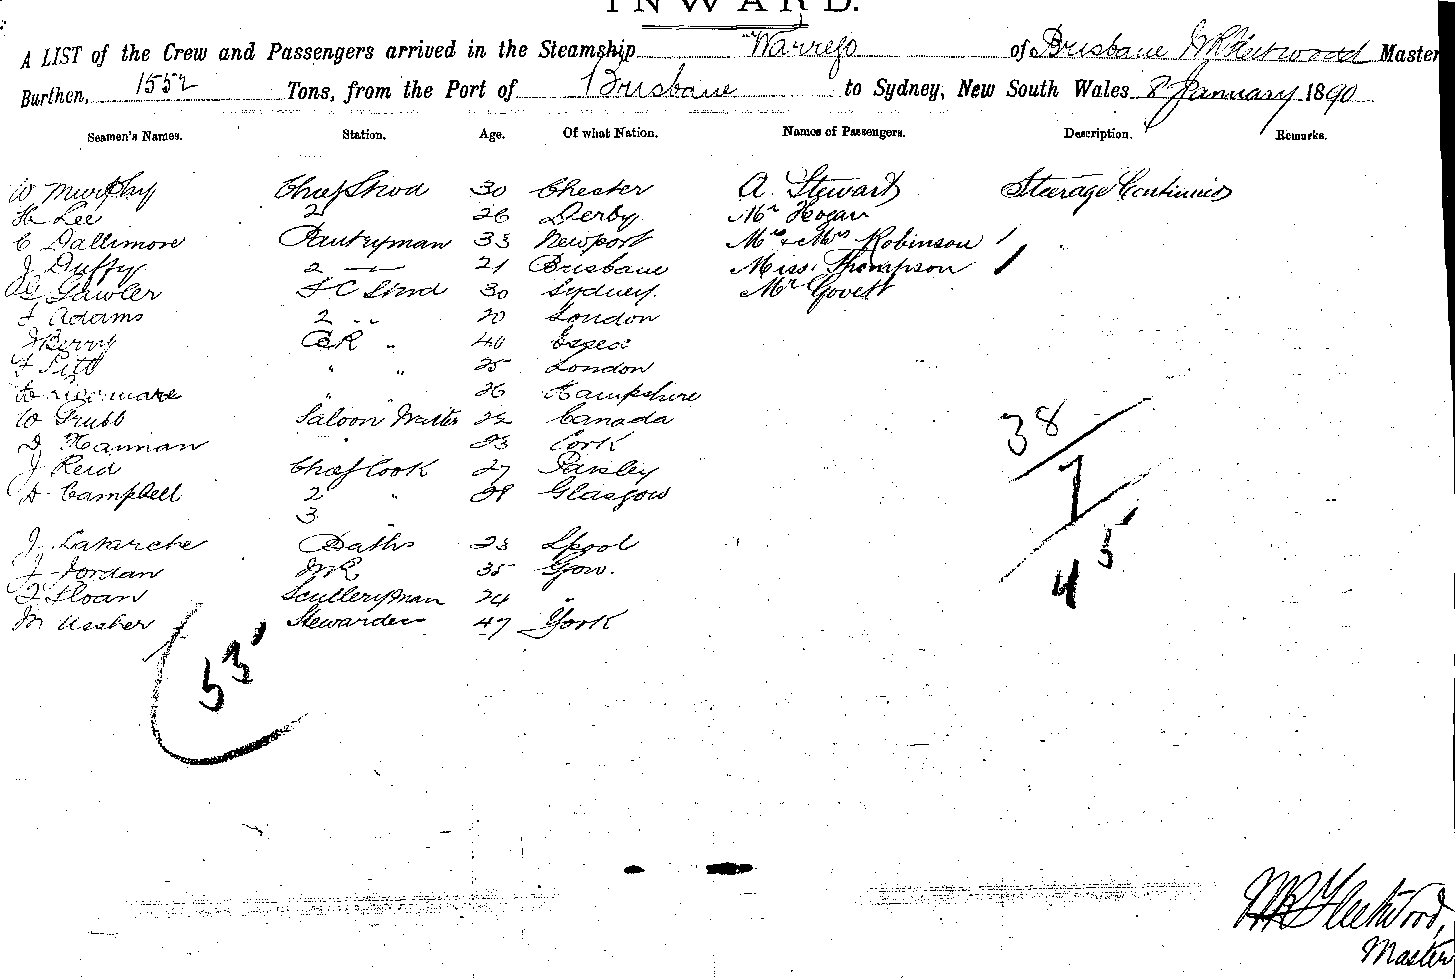 INWARD.
A LIST of the Crew and Passengers arrived in the Steamship Warrego of Brisbane Fleetwood Master
Burthen, 1552 Tons, from the Port of Brisbane to Sydney, New South Wales 8 January 1890
Seamen's Names. Station. Age. Of what Nation. Names of Passengers. Description. Remarks.
W Murphy Chief Stwd 30 Chester A. Stewart Steerage Continued
H Lee 2 26 Derby Mr Hogan
C Dallimore Pantryman 33 Newport Mr & Mrs Robinson /
J Duffy 2 — 21 Brisbane Miss Thompson /
G Gawler F C Stwd 30 Sydney. Mr Govett
F Adams 2 " 20 London
J Berry " 40 Essex
F Pitt " " 25 London
26 Hampshire
W Grubb Saloon Waiter 22 Canada
D Hannan " 23 Cork
J Reid Chief Cook 27 Paisley
D Campbell 2 " 28 Glasgow
3
J. Baths 23 Lpool
J Jordan 35 Gow.
J Sloan Sculleryman 24 "
M Ussher Stewardess 47 York
38
7
45
53
Fleetwood,
Master